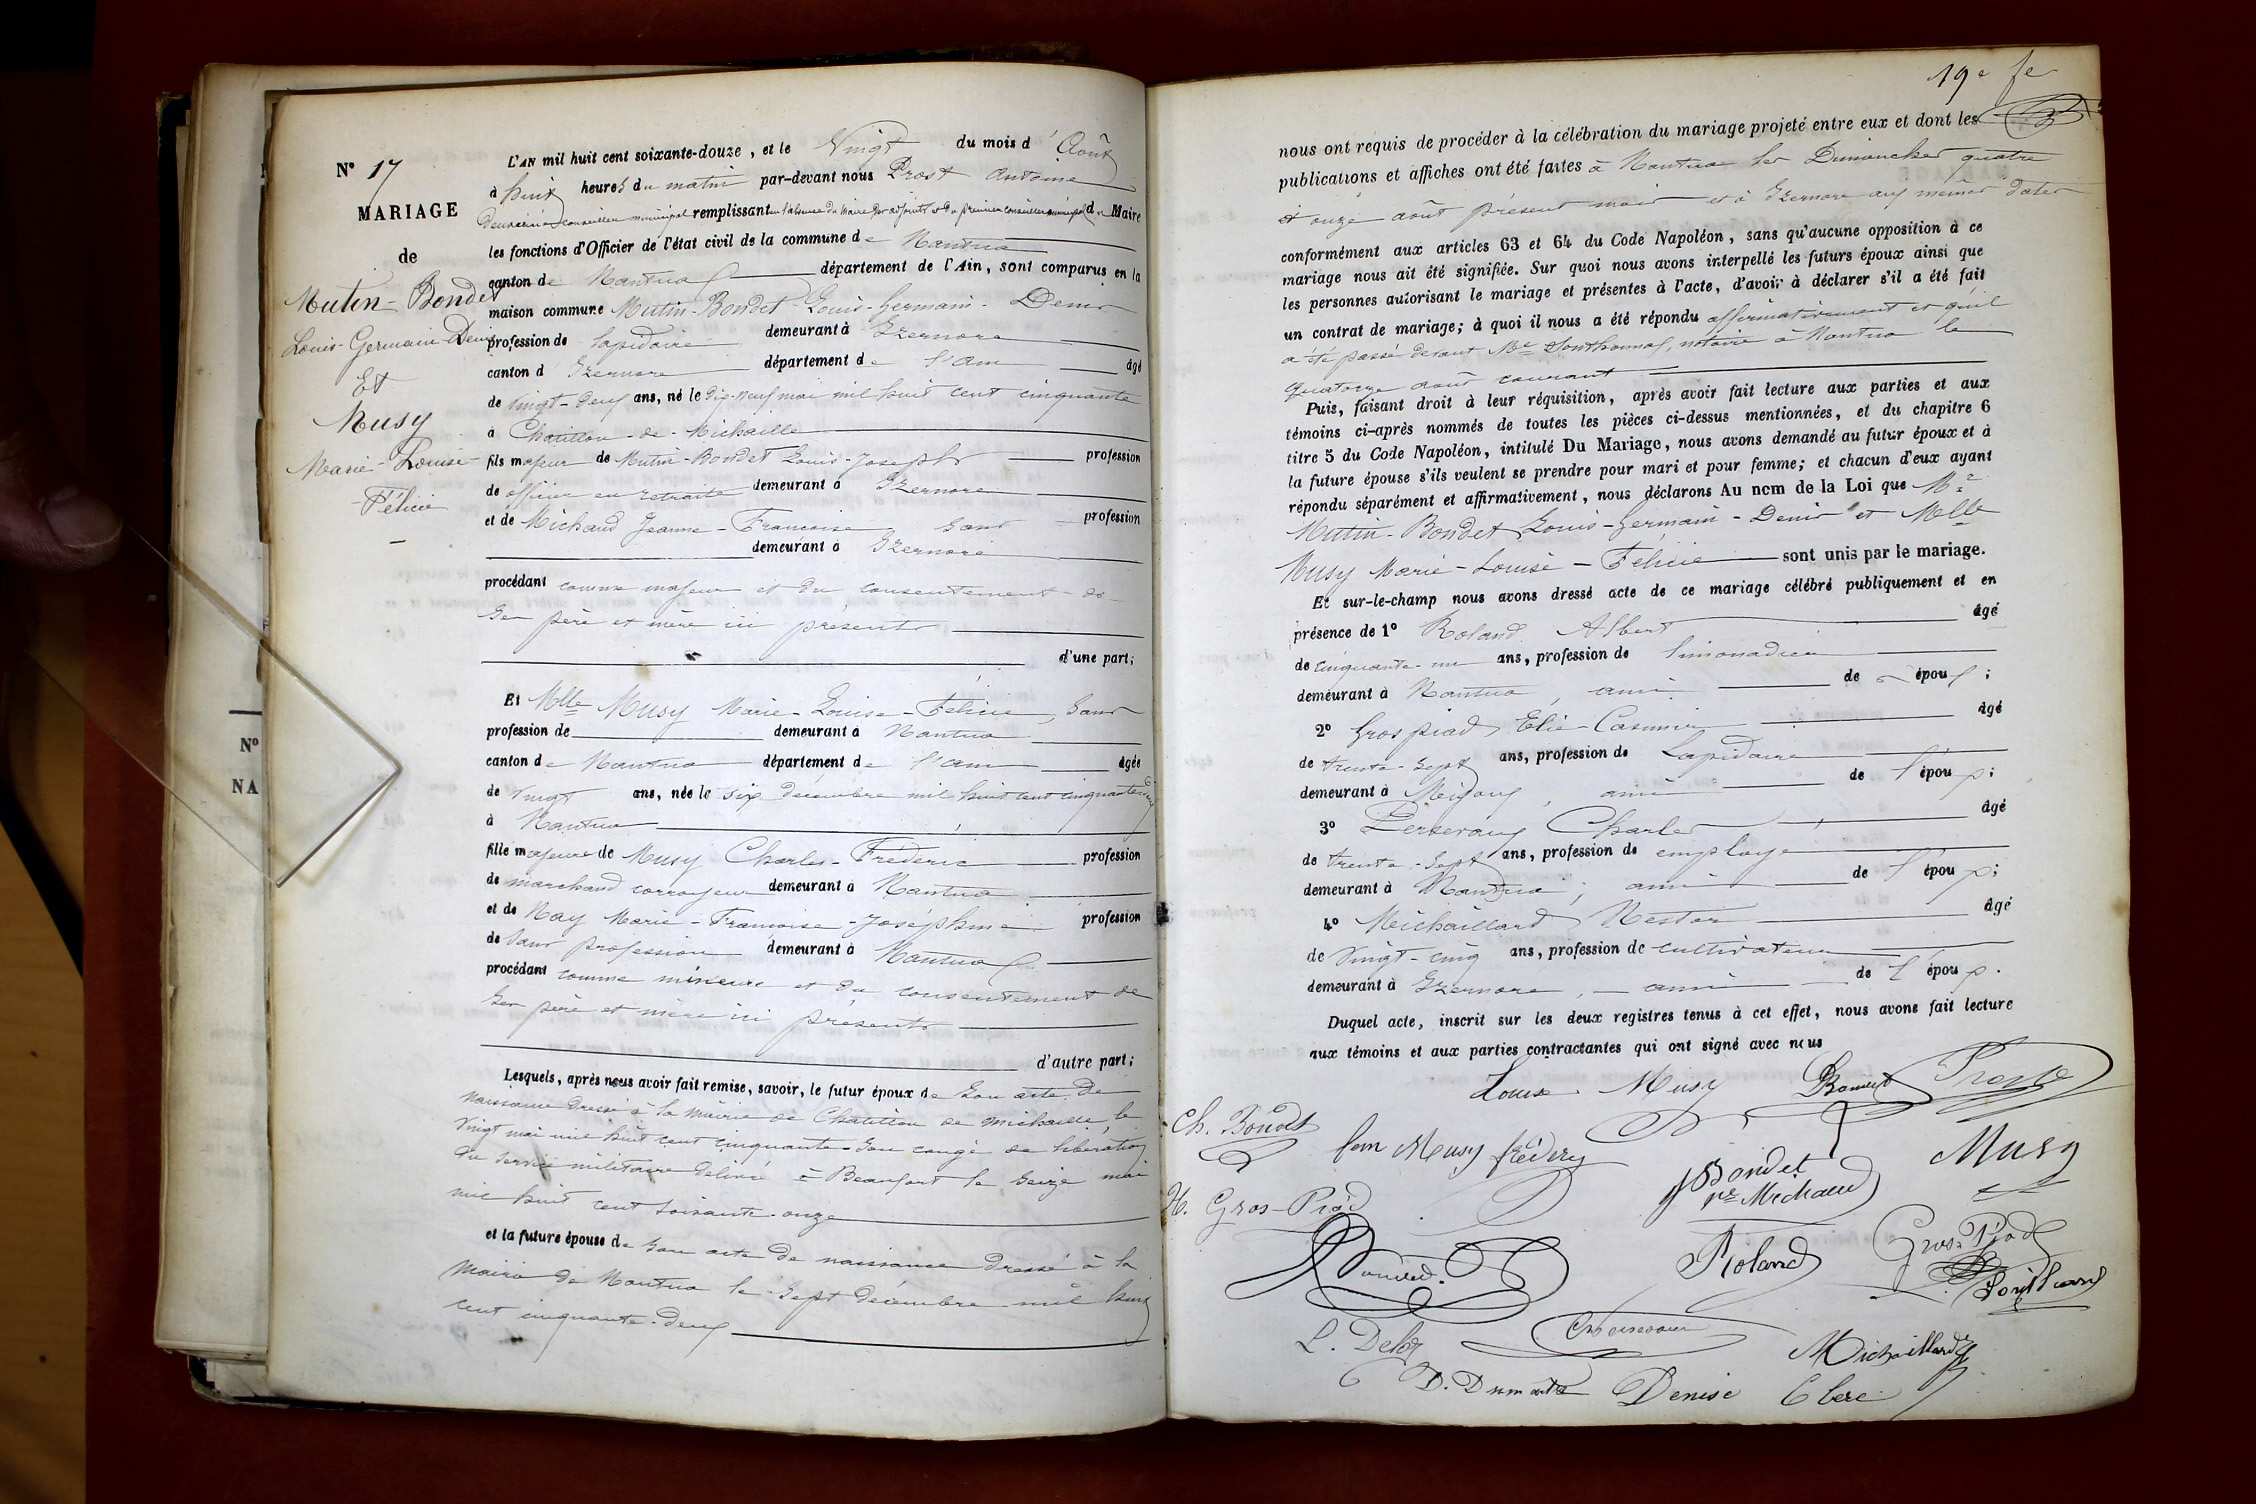 N° 17
MARIAGE
de
Mutin-Bondet
Louis-Germain-Denis
Et
Musy
Marie-Louise-
Félicie
L'AN mil huit cent soixante-douze, et le Vingt du mois d'Août
à huit heures du matin par-devant nous Prost Antoine
deuxième conseiller municipal remplissant en l'absence du Maire des adjoints et du premier conseiller municipal de Maire
les fonctions d'Officier de l'état civil de la commune de Nantua
canton de Nantua département de l'Ain, sont comparus en la
maison commune Mutin-Bondet Louis-Germain-Denis
profession de lapidaire demeurant à Izernore
canton d'Izernore département de l'Ain âgé
de vingt-deux ans, né le dix-neuf mai mil huit cent cinquante
à Chatillon-de-Michaille
fils majeur de Mutin-Bondet Louis-Joseph profession
de officier en retraite demeurant à Izernore
et de Michaud Jeanne-Françoise sans profession
demeurant à Izernore
procédant comme majeur et du consentement de
ses père et mère ici présents
d'une part;
Et Mlle Musy Marie-Louise-Félicie, sans
profession de demeurant à Nantua
canton de Nantua département de l'Ain âgée
de vingt ans, née le six décembre mil huit cent cinquante deux
à Nantua
fille majeure de Musy Charles-Frédéric profession
de marchand corroyeur demeurant à Nantua
et de Nay Marie-Françoise-Joséphine profession
de sans profession demeurant à Nantua
procédant comme mineure et du consentement de
ses père et mère ici présents
d'autre part;
Lesquels, après nous avoir fait remise, savoir, le futur époux de son acte de
naissance dressé à la mairie de Chatillon de Michaille, le
vingt mai mil huit cent cinquante. Son congé de libération
du service militaire délivré à Beaufort le seize mai
mil huit cent soixante-onze
et la future épouse de son acte de naissance dressé à la
Mairie de Nantua le sept décembre mil huit
cent cinquante-deux
N°
NA
19e fe
nous ont requis de procéder à la célébration du mariage projeté entre eux et dont les
publications et affiches ont été faites à Nantua les Dimanches quatre
et onze août présent mois et à Izernore aux mêmes dates
conformément aux articles 63 et 64 du Code Napoléon, sans qu'aucune opposition à ce
mariage nous ait été signifiée. Sur quoi nous avons interpellé les futurs époux ainsi que
les personnes autorisant le mariage et présentes à l'acte, d'avoir à déclarer s'il a été fait
un contrat de mariage; à quoi il nous a été répondu affirmativement et qu'il
a été passé devant Me Sonthonnax notaire à Nantua le
quatorze août courant
Puis, faisant droit à leur réquisition, après avoir fait lecture aux parties et aux
témoins ci-après nommés de toutes les pièces ci-dessus mentionnées, et du chapitre 6
titre 5 du Code Napoléon, intitulé Du Mariage, nous avons demandé au futur époux et à
la future épouse s'ils veulent se prendre pour mari et pour femme; et chacun d'eux ayant
répondu séparément et affirmativement, nous déclarons Au nom de la Loi que Mr
Mutin-Bondet Louis-Germain-Denis et Mlle
Musy Marie-Louise-Félicie sont unis par le mariage.
Et sur-le-champ nous avons dressé acte de ce mariage célébré publiquement et en
présence de 1° Roland Albert âgé
de cinquante-un ans, profession de limonadier
demeurant à Nantua, ami de l'époux;
2° Grospiad Elie-Casimir âgé
de trente-sept ans, profession de Lapidaire
demeurant à Mijoux, ami de l'époux;
3° Charles âgé
de trente-sept ans, profession de employé
demeurant à Nantua; ami de l'époux;
4° Michaillard Nestor âgé
de Vingt-cinq ans, profession de cultivateur
demeurant à Izernore, ami de l'époux.
Duquel acte, inscrit sur les deux registres tenus à cet effet, nous avons fait lecture
aux témoins et aux parties contractantes qui ont signé avec nous
Louise Musy Bondet Prost
Ch. Bondet
fem Musy frédéry
Bondet
née Michaud
Musy
H. Gros-Piod
Roland
Gros-Piod
L. Deloz
Michaillard
D. Dumontet Denise Clerc